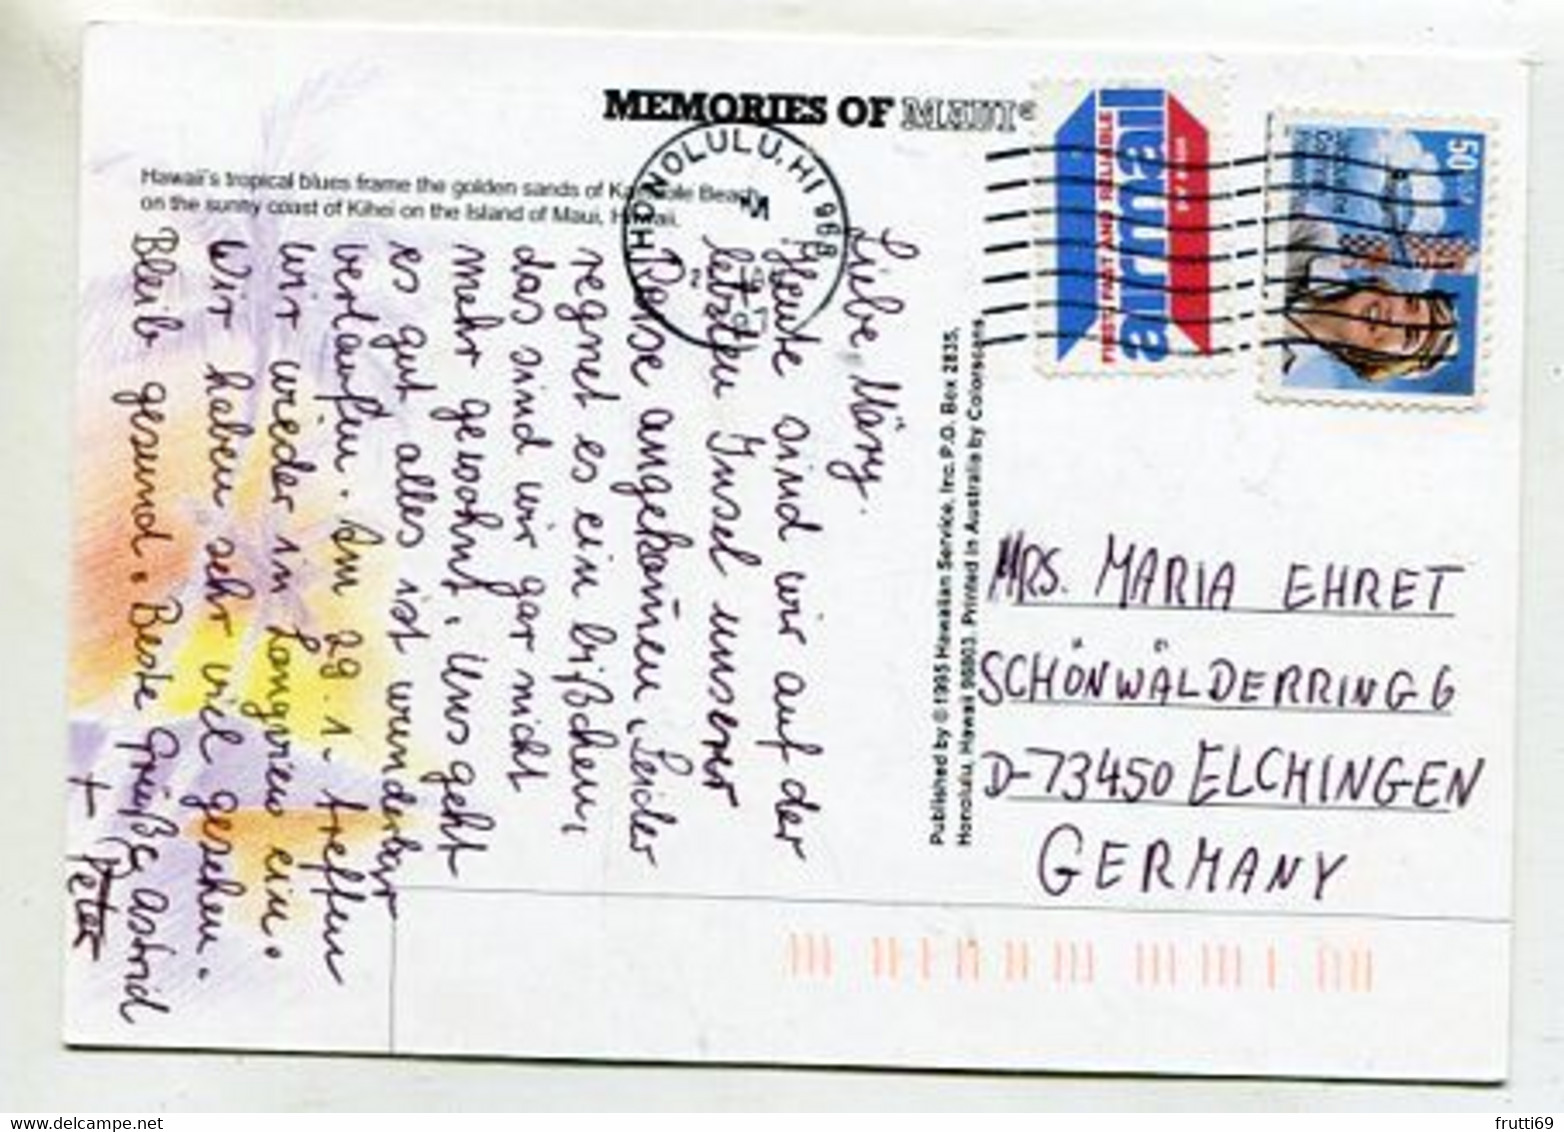 MEMORIES OF MAUI®
Hawaii's tropical blues frame the golden sands of Kamaole Beach
on the sunny coast of Kihei on the Island of Maui, Hawaii.
HONOLULU, HI 968
Liebe Märy.
Heute sind wir auf der
letzten Insel unserer
Reise angekom̄en. Leider
regnet es ein bißchen,
das sind wir gar nicht
mehr gewohnt. Uns geht
es gut alles ist wunderbar
verlaufen. Am 29. 1. treffen
wir wieder in Longview ein.
Wir haben sehr viel gesehen.
Bleib gesund. Beste Grüße Astrid
+ Peter
Published by © 1995 Hawaiian Service, Inc. P.O. Box 2835,
Honolulu, Hawaii 96803. Printed in Australia by Colorscans
FIRST FAST AND RELIABLE
airmail
50
MRS. MARIA EHRET
SCHÖNWÄLDERRING 6
D-73450 ELCHINGEN
GERMANY
www.delcampe.net
frutti69